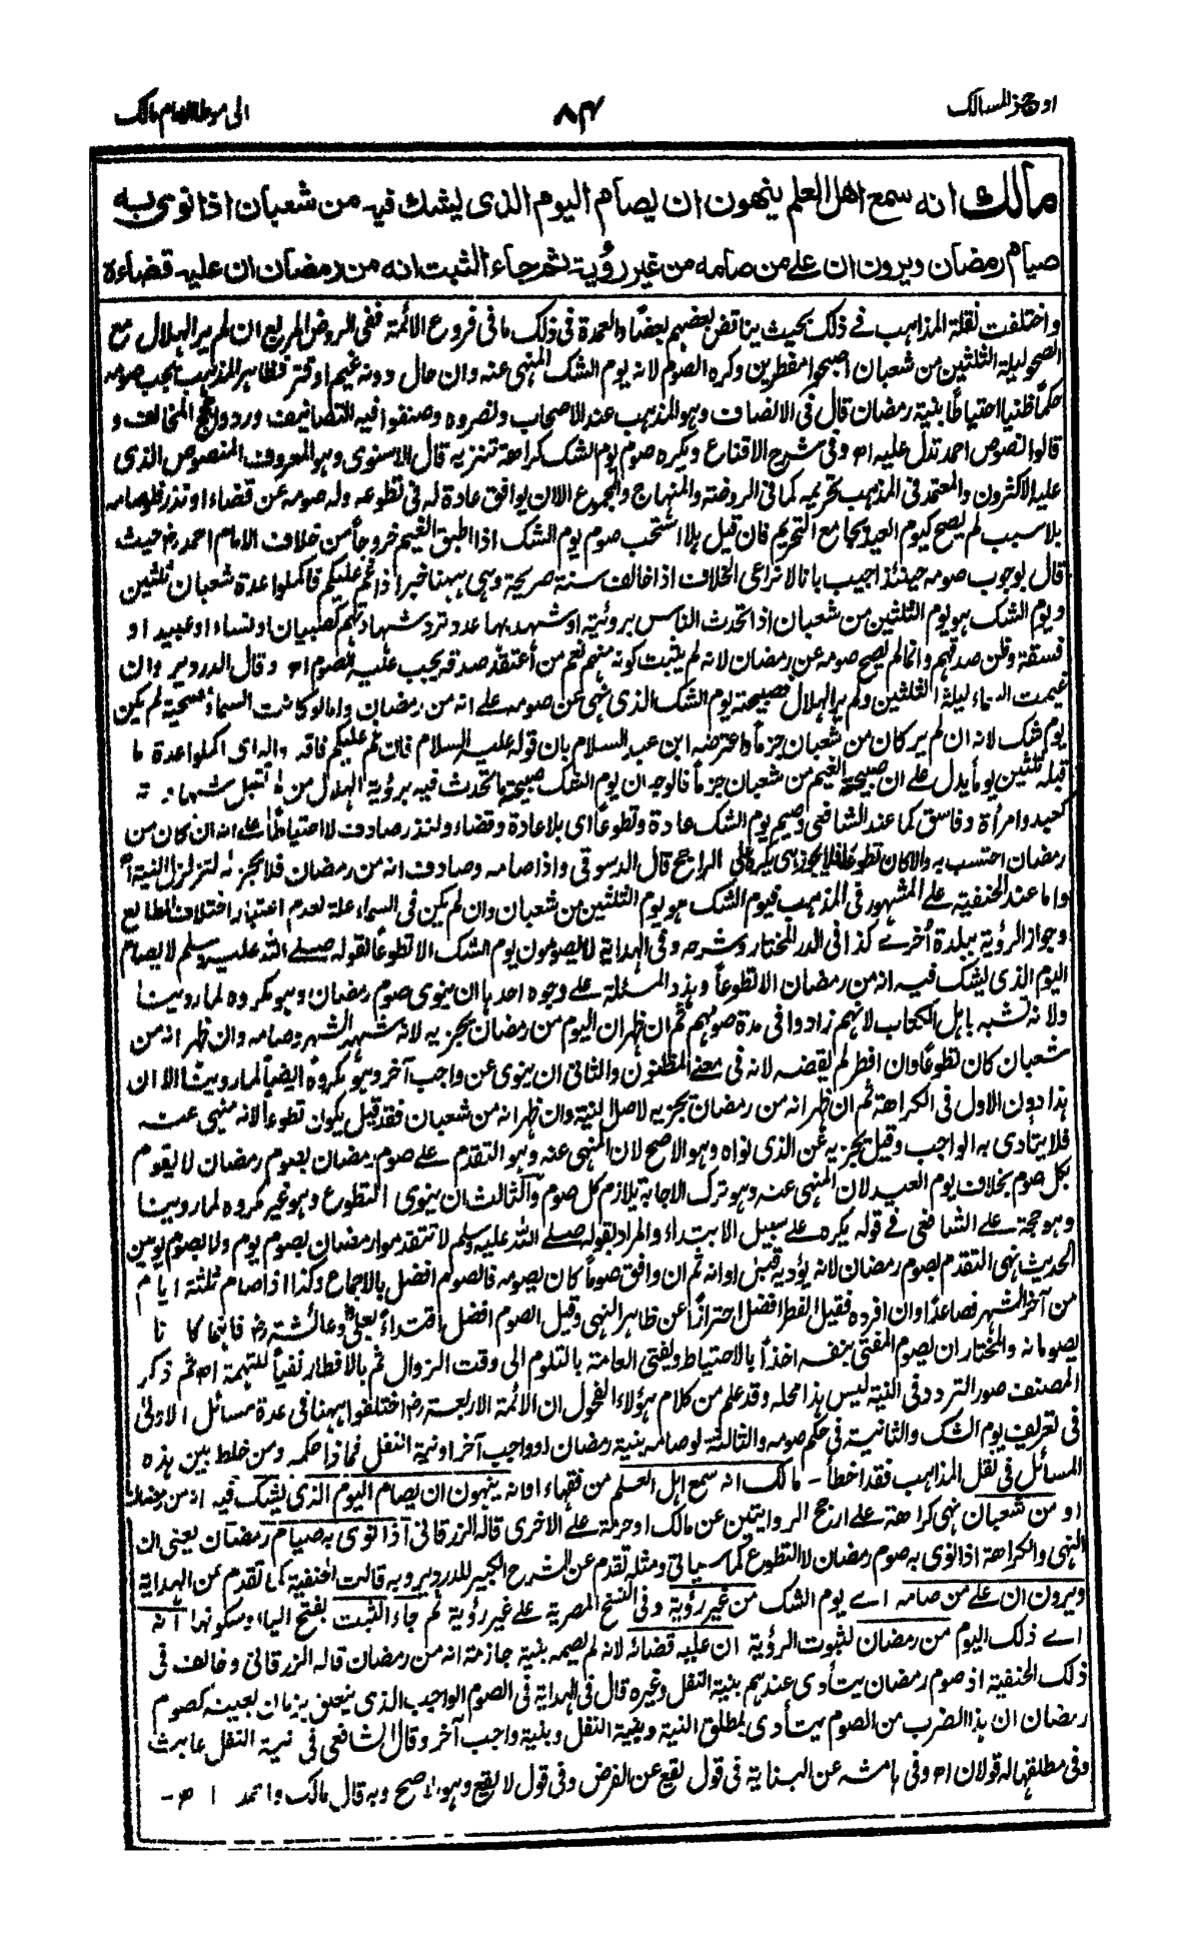 اوجز المسالك
٨٤
الى موطا الامام مالك
مالك انه سمع اهل العلم ينهون ان يصام اليوم الذى يشك فيه من شعبان اذا نوى به
صيام رمضان ويرون ان على من صامه من غير رؤية ثم جاء الثبت انه من رمضان ان عليه قضاءه
واختلفت نقلة المذاهب فى ذلك بحيث يناقض بعضهم بعضا والعمدة فى ذلك ما فى فروع الائمة ففى الروض المربع ان لم ير الهلال مع
الصحو ليلة الثلثين من شعبان اصبحوا مفطرين وكره الصوم لانه يوم الشك المنهى عنه وان حال دونه غيم او قتر فظاهر المذهب يجب صومه
حكما ظنيا احتياطا بنية رمضان قال فى الانصاف وهو المذهب عند الاصحاب ونصروه وصنفوا فيه التصانيف وردوا حجج المخالف و
قالوا نصوص احمد تدل عليه اھ وفى شرح الاقناع ويكره صوم يوم الشك كراهة تنزيه قال الاسنوى وهو المعروف المنصوص الذى
عليه الاكثرون والمعتمد فى المذهب تحريمه كما فى الروضة والمنهاج والمجموع الا ان يوافق عادة له فى تطوعه وله صومه عن قضاء او نذر فلو صامه
بلا سبب لم يصح كيوم العيد بجامع التحريم فان قيل هلا استحب صوم يوم الشك اذا اطبق الغيم خروجا من خلاف الامام احمد رض حيث
قال بوجوب صومه حينئذ اجيب بانا لا نراعى الخلاف اذا خالف سنة صريحة وهى ههنا خبر اذا غم عليكم فاكملوا عدة شعبان ثلثين
ويوم الشك هو يوم الثلثين من شعبان اذا تحدث الناس برؤيته او شهد بها عدد ترد شهادتهم كصبيان او نساء او عبيد او
فسقة وظن صدقهم وانما لم يصح صومه عن رمضان لانه لم يثبت كونه منهم نعم من اعتقد صدقه يجب عليه الصوم اھ وقال الدردير وان
غيمت السماء ليلة الثلثين ولم ير الهلال فصبيحته يوم الشك الذى نهى عن صومه على انه من رمضان واما لو كانت السماء مصحية لم يكن
يوم شك لانه ان لم ير كان من شعبان جزما واعترضه ابن عبد السلام بان قوله عليه السلام فان غم عليكم فاقدروا له اى اكملوا عدة ما
قبله ثلثين يوما يدل على ان صبيحة الغيم من شعبان جزما فالوجه ان يوم الشك صبيحة ما تحدث فيه برؤية الهلال من لا تقبل شهادته
كعبد وامرأة وفاسق كما عند الشافعى وصيم يوم الشك عادة وتطوعا اى بلا عادة وقضاء ولنذر صادف لا احتياطا على انه ان كان من
رمضان احتسب به والا كان تطوعا فلا يجوز اى يكره على الراجح قال الدسوقى واذا صامه وصادف انه من رمضان فلا يجزيه لتزلزل النية اھ
واما عند الحنفية على المشهور فى المذهب فيوم الشك هو يوم الثلثين من شعبان وان لم يكن فى السماء علة لعدم اعتبار اختلاف المطالع
وجواز الرؤية ببلدة اخرى كذا فى الدر المختار وشرحه وفى الهداية لا يصومون يوم الشك الا تطوعا لقوله صلى الله عليه وسلم لا يصام
اليوم الذى يشك فيه انه من رمضان الا تطوعا وهذه المسئلة على وجوه احدها ان ينوى صوم رمضان وهو مكروه لما روينا
ولانه تشبه باهل الكتاب لانهم زادوا فى مدة صومهم ثم ان ظهر ان اليوم من رمضان يجزيه لانه شهد الشهر وصامه وان ظهر انه من
شعبان كان تطوعا وان افطر لم يقضه لانه فى معنى المظنون والثانى ان ينوى عن واجب آخر وهو مكروه ايضا لما روينا الا ان
هذا دون الاول فى الكراهة ثم ان ظهر انه من رمضان يجزيه لاصل النية وان ظهر انه من شعبان فقد قيل يكون تطوعا لانه منهى عنه
فلا يتادى به الواجب وقيل يجزيه عن الذى نواه وهو الاصح لان المنهى عنه وهو التقدم على صوم رمضان بصوم رمضان لا يقوم
بكل صوم بخلاف يوم العيد لان المنهى عنه وهو ترك الاجابة يلازم كل صوم والثالث ان ينوى التطوع وهو غير مكروه لما روينا
وهو حجة على الشافعى فى قوله يكره على سبيل الابتداء والمراد بقوله صلى الله عليه وسلم لا تتقدموا رمضان بصوم يوم ولا بصوم يومين
الحديث نهى التقدم بصوم رمضان لانه يؤديه قبل اوانه ثم ان وافق صوما كان يصومه فالصوم افضل بالاجماع وكذا اذا صام ثلثة ايام
من آخر الشهر فصاعدا وان افرده فقيل الفطر افضل احترازا عن ظاهر النهى وقيل الصوم افضل اقتداء بعلى وعائشة رض فانهما كانا
يصومانه والمختار ان يصوم المفتى بنفسه اخذا بالاحتياط ويفتى العامة بالتلوم الى وقت الزوال ثم بالافطار نفيا للتهمة اھ ثم ذكر
المصنف صور التردد فى النية ليس هذا محله وقد علم من كلام هؤلاء الفحول ان الائمة الاربعة رض اختلفوا ههنا فى عدة مسائل الاولى
فى تعريف يوم الشك والثانية فى حكم صومه والثالثة لو صامه بنية رمضان او واجب آخر او نية النفل فماذا حكمه ومن خلط بين هذه
المسائل فى نقل المذاهب فقد اخطأ - مالك انه سمع اهل العلم من فقهاء اوانه ينهون ان يصام اليوم الذى يشك فيه انه من رمضان
او من شعبان نهى كراهة على ارجح الروايتين عن مالك او حرمة على الاخرى قاله الزرقانى اذا نوى به صيام رمضان يعنى ان
النهى والكراهة اذا نوى به صوم رمضان لا التطوع كما سياتى ومثله تقدم عن الشرح الكبير للدردير وبه قالت الحنفية كما تقدم عن الهداية
ويرون ان على من صامه اى يوم الشك من غير رؤية وفى النسخ المصرية على غير رؤية ثم جاء الثبت بفتح الباء وسكونها انه
اى ذلك اليوم من رمضان لثبوت الرؤية ان عليه قضائه لانه لم يصمه بنية جازمة انه من رمضان قاله الزرقانى وخالف فى
ذلك الحنفية اذ صوم رمضان يتأدى عندهم بنية النفل وغيره قال فى الهداية فى الصوم الواجب الذى يتعلق بزمان بعينه كصوم
رمضان ان هذا الضرب من الصوم يتأدى بمطلق النية وبنية النفل وبنية واجب آخر وقال الشافعى فى نية النفل عابث
وفى مطلقها له قولان اھ وفى هامشه عن البناية فى قول يقع عن الفرض وفى قول لا يقع وهو الاصح وبه قال مالك واحمد اھ -